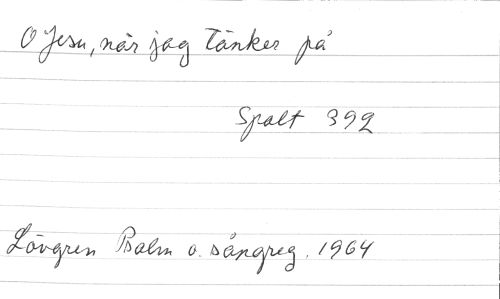 O Jesu, när jag tänker på
Spalt 392
Lövgren Psalm o. sångreg. 1964